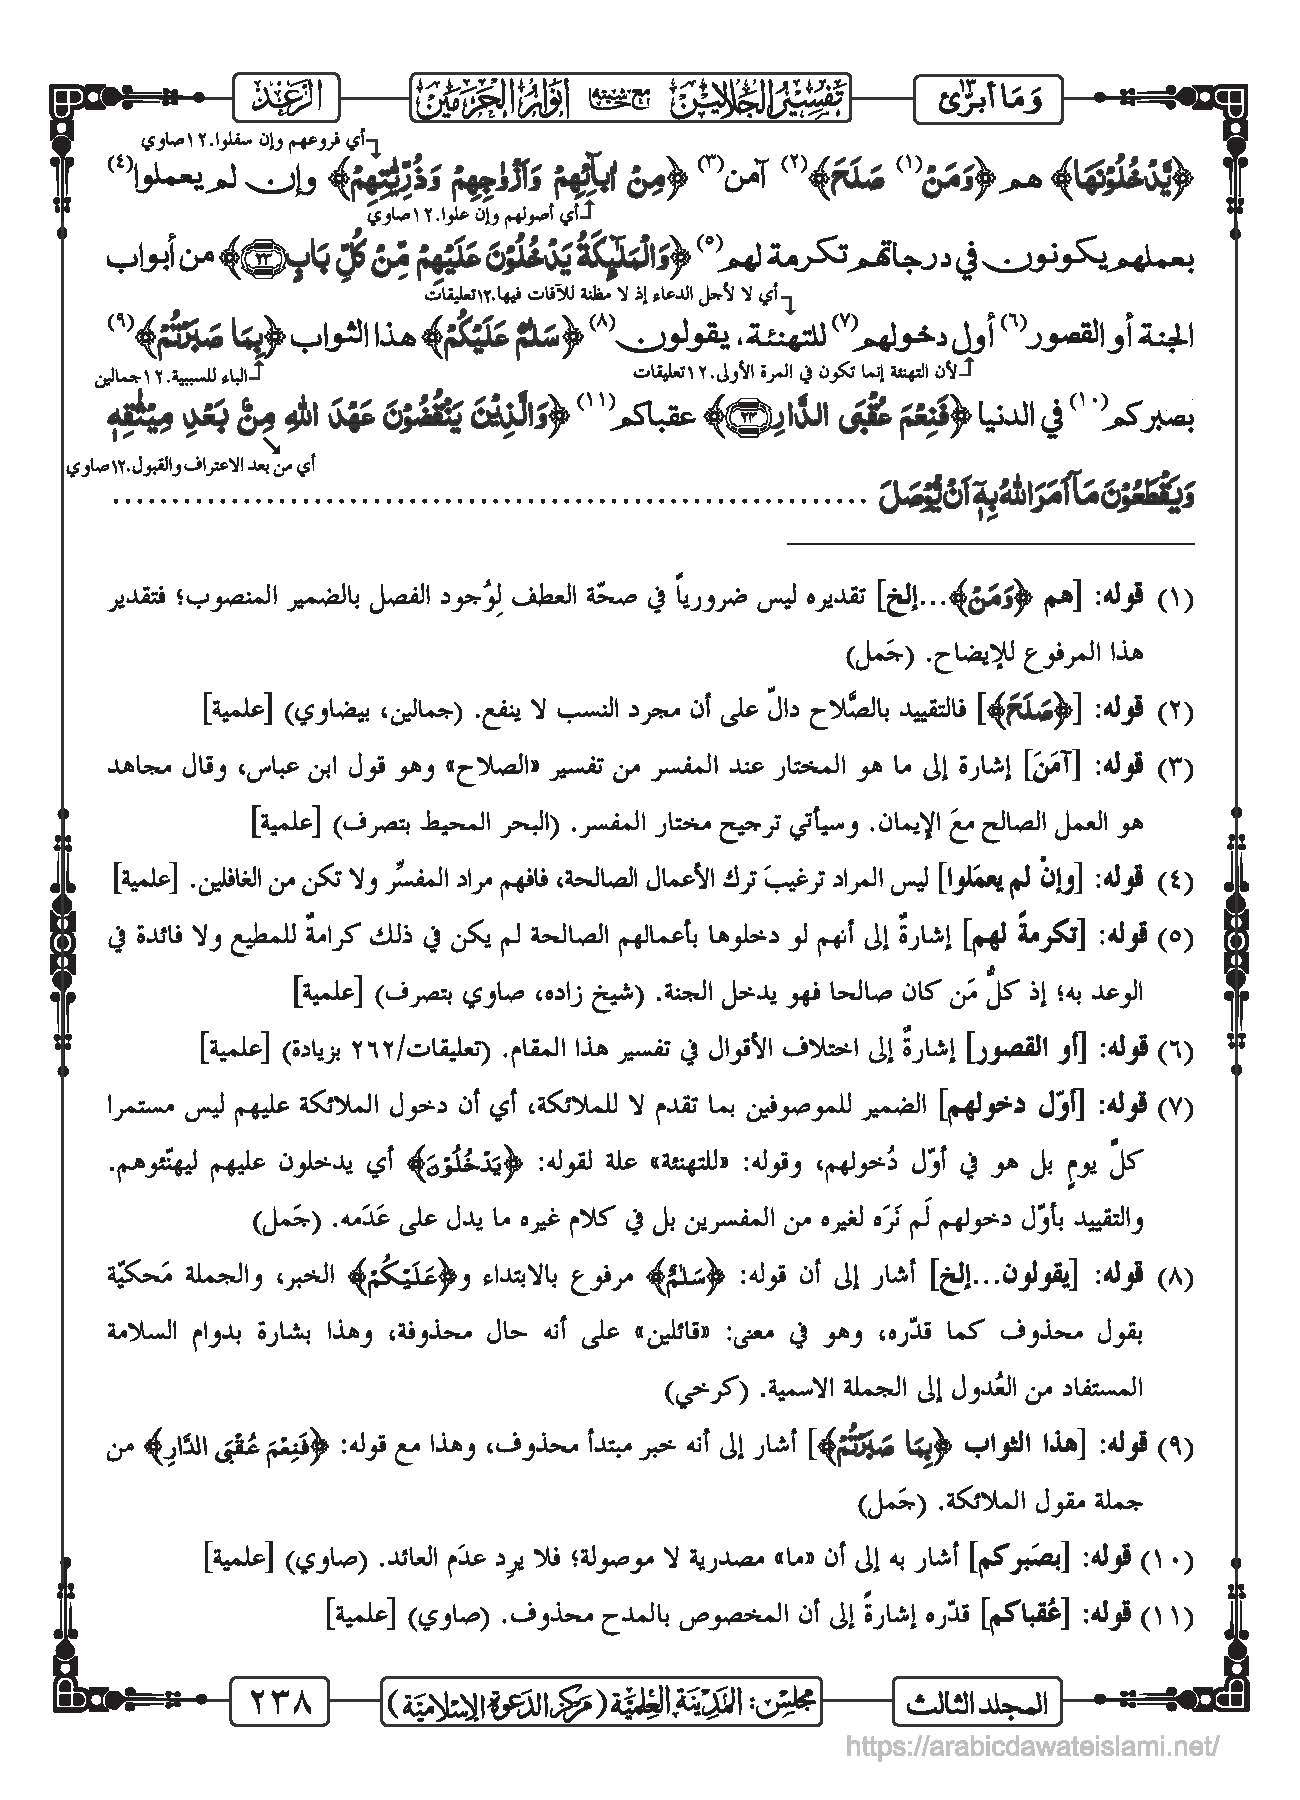 وَمَا أبرّئ ١٣
تفسير الجلالين مع حاشيته أنوار الحرمين
الرعد
أي فروعهم وإن سفلوا.١٢صاوي
﴿يَّدْخُلُوْنَهَا﴾ هم ﴿وَمَنْ(١) صَلَحَ﴾(٢) آمن(٣) ﴿مِنْ اٰبَآئِهِمْ وَاَزْوٰجِهِمْ وَذُرِّيّٰتِهِمْ﴾ وإن لم يعملوا(٤)
أي أصولهم وإن علوا.١٢صاوي
بعملهم يكونون في درجاتهم تكرمة لهم(٥) ﴿وَالْمَلٰٓئِكَةُ يَدْخُلُوْنَ عَلَيْهِمْ مِّنْ كُلِّ بَابٍ ﴿٢٣﴾﴾ من أبواب
أي لا لأجل الدعاء إذ لا مظنة للآفات فيها.١٢تعليقات
الجنة أو القصور(٦) أول دخولهم(٧) للتهنئة، يقولون(٨) ﴿سَلٰمٌ عَلَيْكُمْ﴾ هذا الثواب ﴿بِمَا صَبَرْتُمْ﴾(٩)
لأن التهنئة إنما تكون في المرة الأولى.١٢تعليقات
الباء للسببية.١٢جمالين
بصبركم(١٠) في الدنيا ﴿فَنِعْمَ عُقْبَى الدَّارِ ﴿٢٤﴾﴾ عقباكم(١١) ﴿وَالَّذِيْنَ يَنْقُضُوْنَ عَهْدَ اللهِ مِنْۢ بَعْدِ مِيْثٰقِهٖ
أي من بعد الاعتراف والقبول.١٢صاوي
وَيَقْطَعُوْنَ مَاۤ اَمَرَ اللهُ بِهٖۤ اَنْ يُّوْصَلَ ......................................................
(١) قوله: [هم ﴿وَمَنْ﴾...إلخ] تقديره ليس ضرورياً في صحّة العطف لِوُجود الفصل بالضمير المنصوب؛ فتقدير
هذا المرفوع للإيضاح. (جَمل)
(٢) قوله: [﴿صَلَحَ﴾] فالتقييد بالصَّلاح دالّ على أن مجرد النسب لا ينفع. (جمالين، بيضاوي) [علمية]
(٣) قوله: [آمَنَ] إشارة إلى ما هو المختار عند المفسر من تفسير «الصلاح» وهو قول ابن عباس، وقال مجاهد
هو العمل الصالح معَ الإيمان. وسيأتي ترجيح مختار المفسر. (البحر المحيط بتصرف) [علمية]
(٤) قوله: [وإنْ لم يعمَلوا] ليس المراد ترغيبَ ترك الأعمال الصالحة، فافهم مراد المفسِّر ولا تكن من الغافلين. [علمية]
(٥) قوله: [تكرمةً لهم] إشارةٌ إلى أنهم لو دخلوها بأعمالهم الصالحة لم يكن في ذلك كرامةٌ للمطيع ولا فائدة في
الوعد به؛ إذ كلُّ مَن كان صالحا فهو يدخل الجنة. (شيخ زاده، صاوي بتصرف) [علمية]
(٦) قوله: [أو القصور] إشارةٌ إلى اختلاف الأقوال في تفسير هذا المقام. (تعليقات/٢٦٢ بزيادة) [علمية]
(٧) قوله: [أوّل دخولهم] الضمير للموصوفين بما تقدم لا للملائكة، أي أن دخول الملائكة عليهم ليس مستمرا
كلَّ يومٍ بل هو في أوّل دُخولهم، وقوله: «للتهنئة» علة لقوله: ﴿يَدْخُلُوْنَ﴾ أي يدخلون عليهم ليهنّئوهم.
والتقييد بأوّل دخولهم لَم نَرَه لغيره من المفسرين بل في كلام غيره ما يدل على عَدَمه. (جَمل)
(٨) قوله: [يقولون...إلخ] أشار إلى أن قوله: ﴿سَلٰمٌ﴾ مرفوع بالابتداء و﴿عَلَيْكُمْ﴾ الخبر، والجملة مَحكيّة
بقول محذوف كما قدّره، وهو في معنى: «قائلين» على أنه حال محذوفة، وهذا بشارة بدوام السلامة
المستفاد من العُدول إلى الجملة الاسمية. (كرخي)
(٩) قوله: [هذا الثواب ﴿بِمَا صَبَرْتُمْ﴾] أشار إلى أنه خبر مبتدأ محذوف، وهذا مع قوله: ﴿فَنِعْمَ عُقْبَى الدَّارِ﴾ من
جملة مقول الملائكة. (جَمل)
(١٠) قوله: [بصَبركم] أشار به إلى أن «ما» مصدرية لا موصولة؛ فلا يرِد عدَم العائد. (صاوي) [علمية]
(١١) قوله: [عُقباكم] قدّره إشارةً إلى أن المخصوص بالمدح محذوف. (صاوي) [علمية]
المجلد الثالث
مجلس: المدينة العلمية (مركز الدعوة الإسلامية)
٢٣٨
https://arabicdawateislami.net/